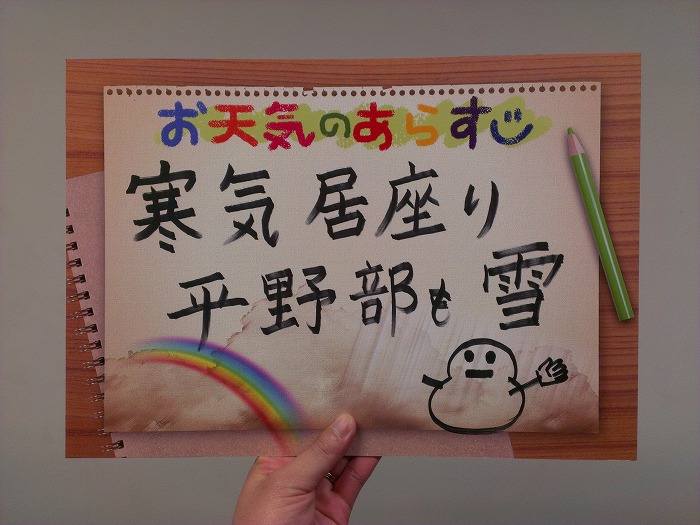 お天気のあらすじ
寒気居座り
平野部も雪